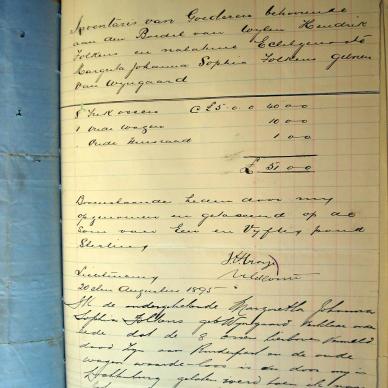 Inventaris van Goederen behoorende
aan den Boedel van wylen Hendrik
Folkens en nalatene Echtgenoote
Margreta Johanna Sophia Folkens geboren
van Wyngaard
8 Trek ossen @ £5.0.0 40 0 0
1 Oude Wagen 10 0 0
" Oude Huisraad 1 0 0
£ 51 0 0
Bovenstaande Leden door my
opgenomen en getaxeerd op de
Som van Een en Vyftig pond
Sterling
Veldcornet
Lichtenburg
20sten Augustus 1895
Ik de ondergetekende Margretha Johanna
Sophia Folkens geb Wyngaard verklaar onder
eede dat de 8 ossen hierboven vermeld
door Zyn aan Runderpest en de oude
wagen waardeloos is en door my in